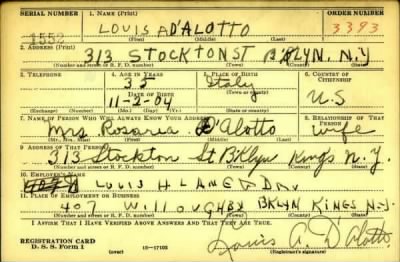 SERIAL NUMBER 1. NAME (Print) ORDER NUMBER
1552 LOUIS A D'ALOTTO 3393
(First) (Middle) (Last)
2. ADDRESS (Print)
313 STOCKTON ST B'KLYN. N.Y
(Number and street or R. F. D. number) (Town) (County) (State)
3. TELEPHONE 4. AGE IN YEARS 5. PLACE OF BIRTH 6. COUNTRY OF CITIZENSHIP
35 Italy
DATE OF BIRTH (Town or county)
11-2-04 U.S
(Exchange) (Number) (Mo.) (Day) (Yr.) (State or country)
7. NAME OF PERSON WHO WILL ALWAYS KNOW YOUR ADDRESS 8. RELATIONSHIP OF THAT PERSON
Mrs Rosaria D'Alotto wife
(Mr., Mrs., Miss) (First) (Middle) (Last)
9. ADDRESS OF THAT PERSON
313 Stockton St Bklyn Kings N.Y.
(Number and street or R. F. D. number) (Town) (County) (State)
10. EMPLOYER'S NAME
LOUIS H LANE
11. PLACE OF EMPLOYMENT OR BUSINESS
407 WILLOUGHBY BKLYN KINGS N.Y.
(Number and street or R. F. D. number) (Town) (County) (State)
I AFFIRM THAT I HAVE VERIFIED ABOVE ANSWERS AND THAT THEY ARE TRUE.
REGISTRATION CARD
D. S. S. Form 1 (over) 16-17105 Louis A. D'Alotto
(Registrant's signature)